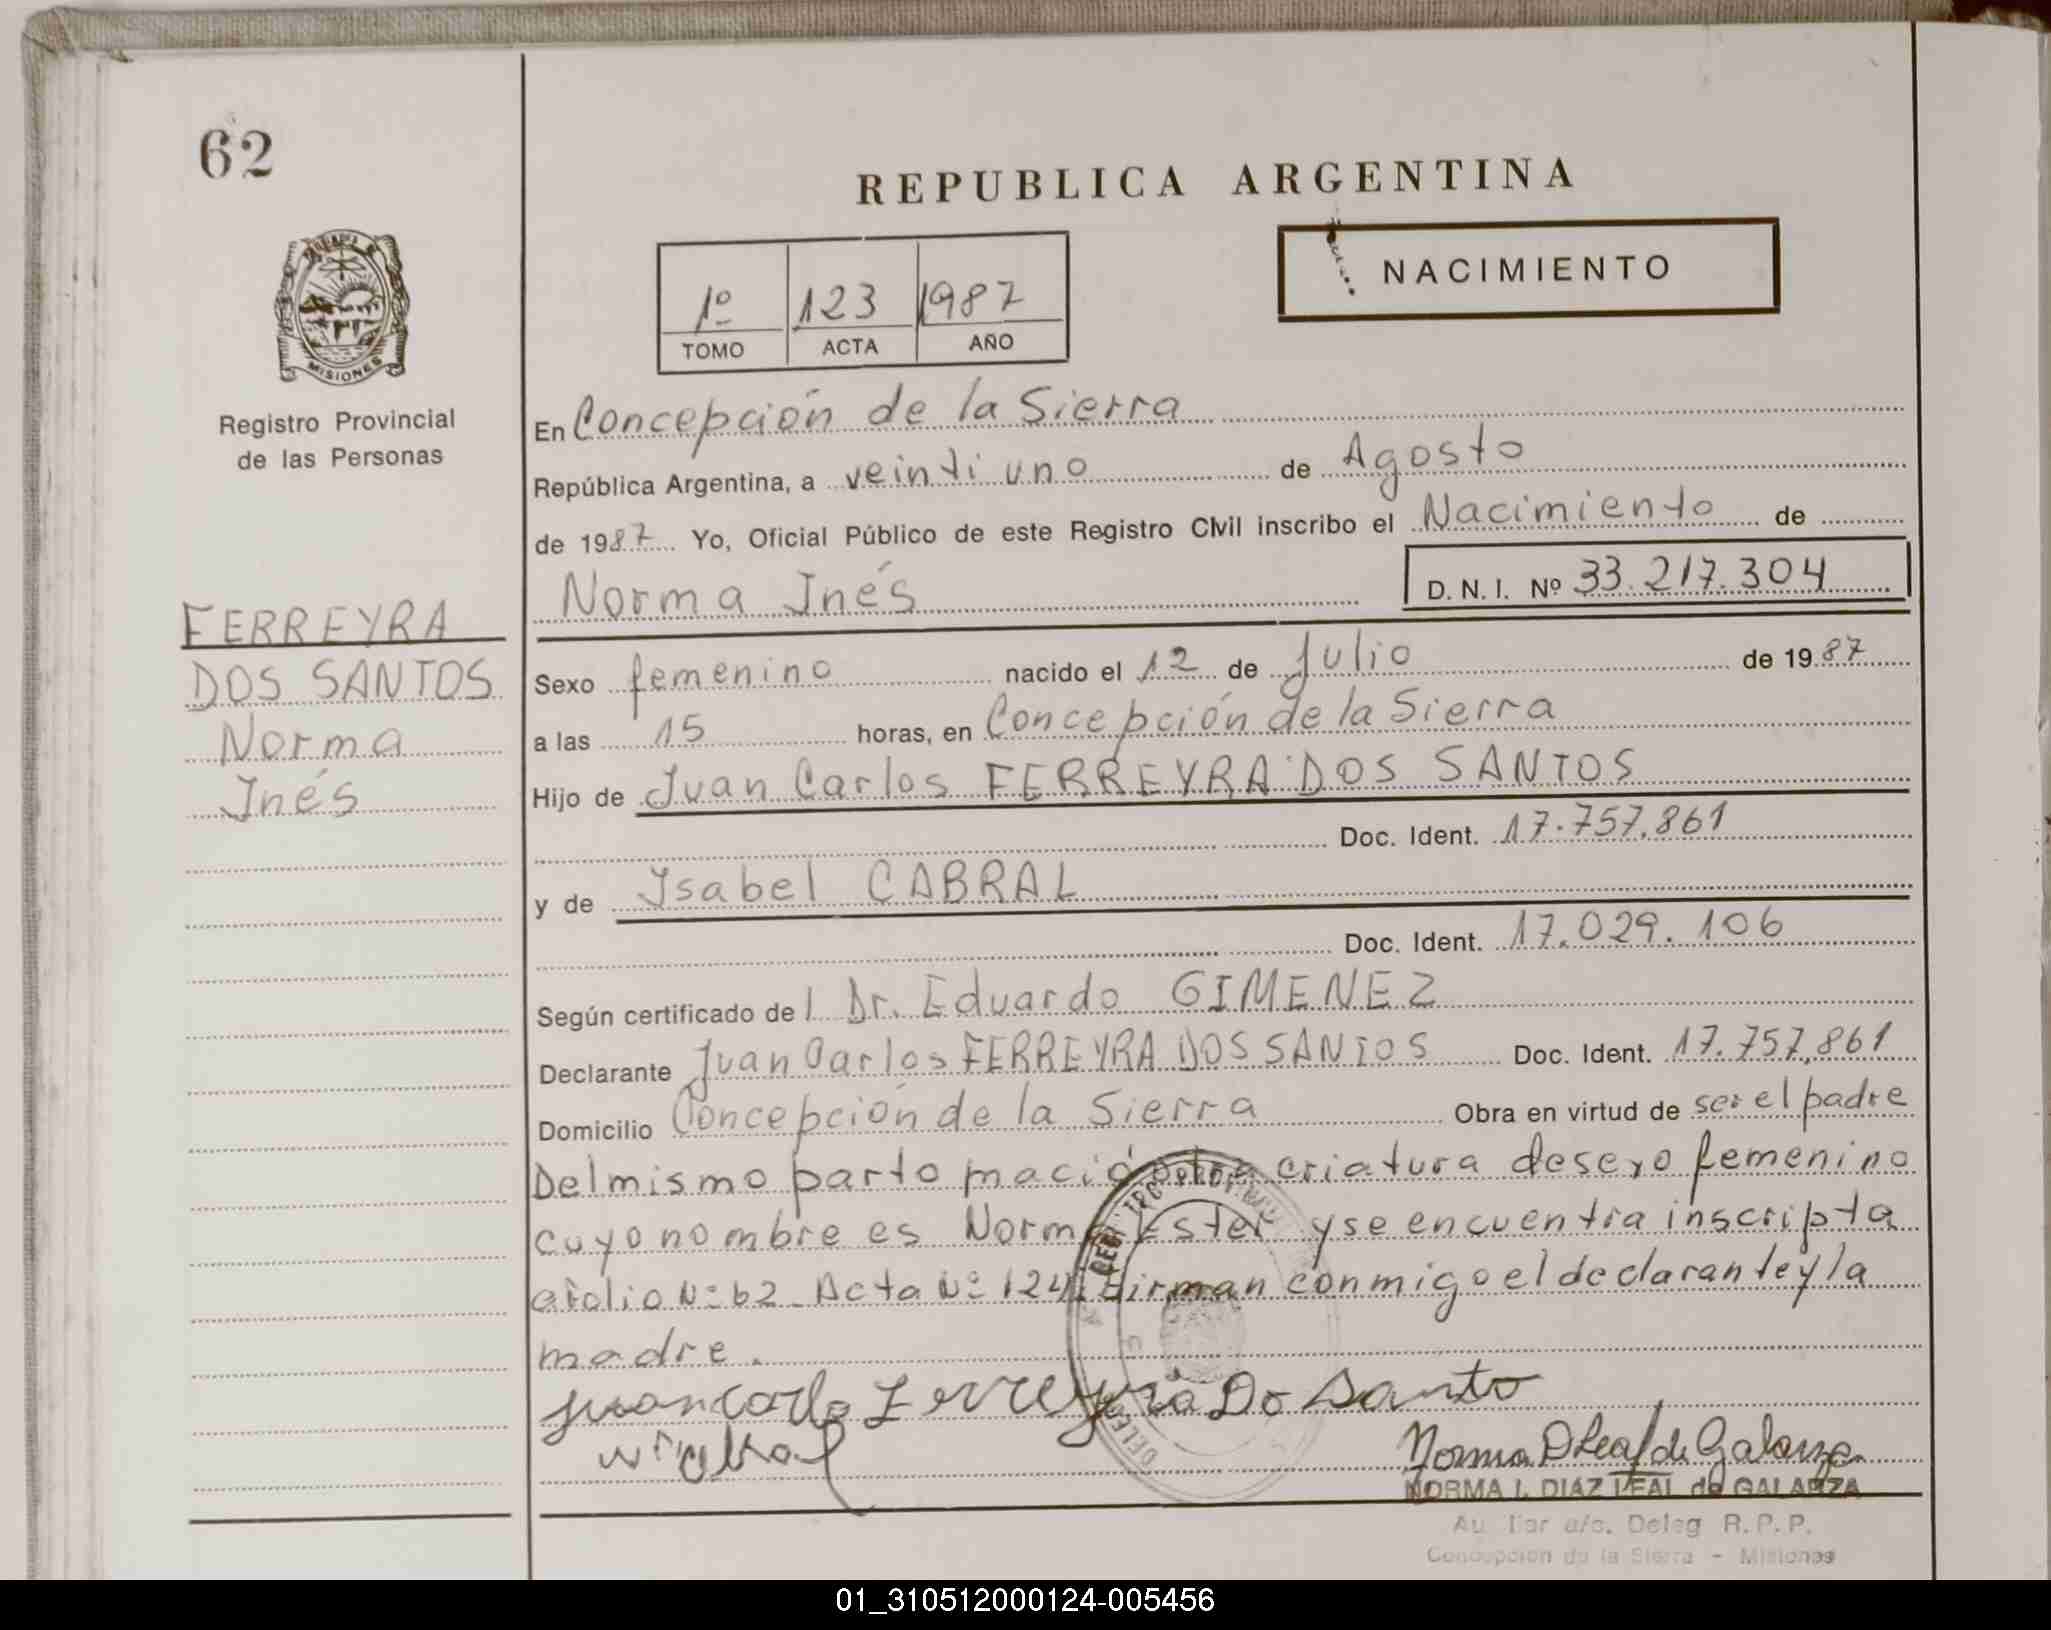 62
REPUBLICA ARGENTINA
NACIMIENTO
1º 123 1987
TOMO ACTA AÑO
MISIONES
Registro Provincial
de las Personas
FERREYRA
DOS SANTOS
Norma
Inés
En Concepción de la Sierra
República Argentina, a veinti uno de Agosto
de 1987 Yo, Oficial Público de este Registro Civil inscribo el Nacimiento de
Norma Inés D. N. I. Nº 33.217.304
Sexo femenino nacido el 12 de Julio de 1987
a las 15 horas, en Concepción de la Sierra
Hijo de Juan Carlos FERREYRA DOS SANTOS
Doc. Ident. 17.757.861
y de Ysabel CABRAL
Doc. Ident. 17.029.106
Según certificado del Dr. Eduardo GIMENEZ
Declarante Juan Carlos FERREYRA DOS SANTOS Doc. Ident. 17.757.861
Domicilio Concepción de la Sierra Obra en virtud de ser el padre
Del mismo parto nació otra criatura de sexo femenino
cuyo nombre es Norma Ester y se encuentra inscripta
a folio Nº 62 Acta Nº 124. Firman conmigo el declarante y la
madre.
Juan Carlo Ferreyra Do Santo
Norma D Leal de Galarza
NORMA I. DIAZ LEAL de GALARZA
Auxiliar a/c. Deleg R.P.P.
Concepción de la Sierra - Misiones
01_310512000124-005456